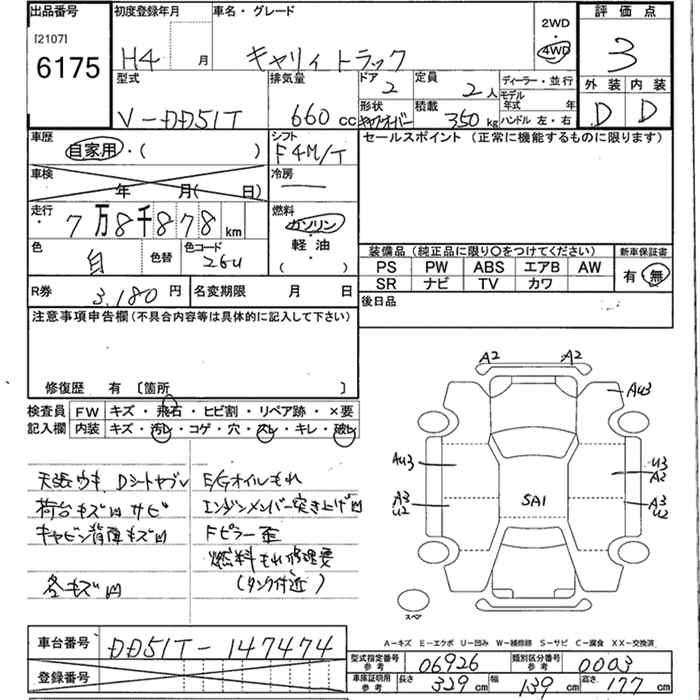 出品番号
[2107]
6175
初度登録年月
H4 月
車名・グレード
キャリィ トラック
2WD
4WD
評価点
3
外装 内装
D D
型式
V-DD51T
排気量
660 cc
ドア
2
定員
2人
形状
キャブオーバー
積載
350 kg
ディーラー・並行
モデル年式 年
ハンドル 左・右
車歴
自家用・( )
シフト
F4M/T
セールスポイント (正常に機能するものに限ります)
車検
年 月( 日)
冷房
走行
7万8千878km
燃料
ガソリン
・
軽油
( )
色
白
色替
色コード
26U
装備品 (純正品に限り○をつけてください)
PS PW ABS エアB AW
SR ナビ TV カワ
新車保証書
有 無
R券
3,180円
名変期限 月 日
後日品
注意事項申告欄(不具合内容等は具体的に記入して下さい)
修復歴 有 [箇所 ]
検査員記入欄
FW キズ・飛石・ヒビ割・リペア跡・×要
内装 キズ・汚レ・コゲ・穴・スレ・キレ・破レ
天張ウキ Dシートヤブレ
荷台キズ凹 サビ
キャビン背障キズ凹
各キズ凹
E/Gオイルもれ
エンジンメンバー突き上げ凹
Fピラー歪
燃料もれ修理要
(タンク付近)
A2 A2
AU3
AU3
U3
A2
A3
U2
SA1
A3
U2
スペア
A-キズ E-エクボ U-凹み W-補修跡 S-サビ C-腐食 XX-交換済
車台番号
DD51T-147474
登録番号
型式指定番号 参考
06926
類別区分番号 参考
0003
車庫証明用 参考
長さ 329cm
幅 139cm
高さ 177cm